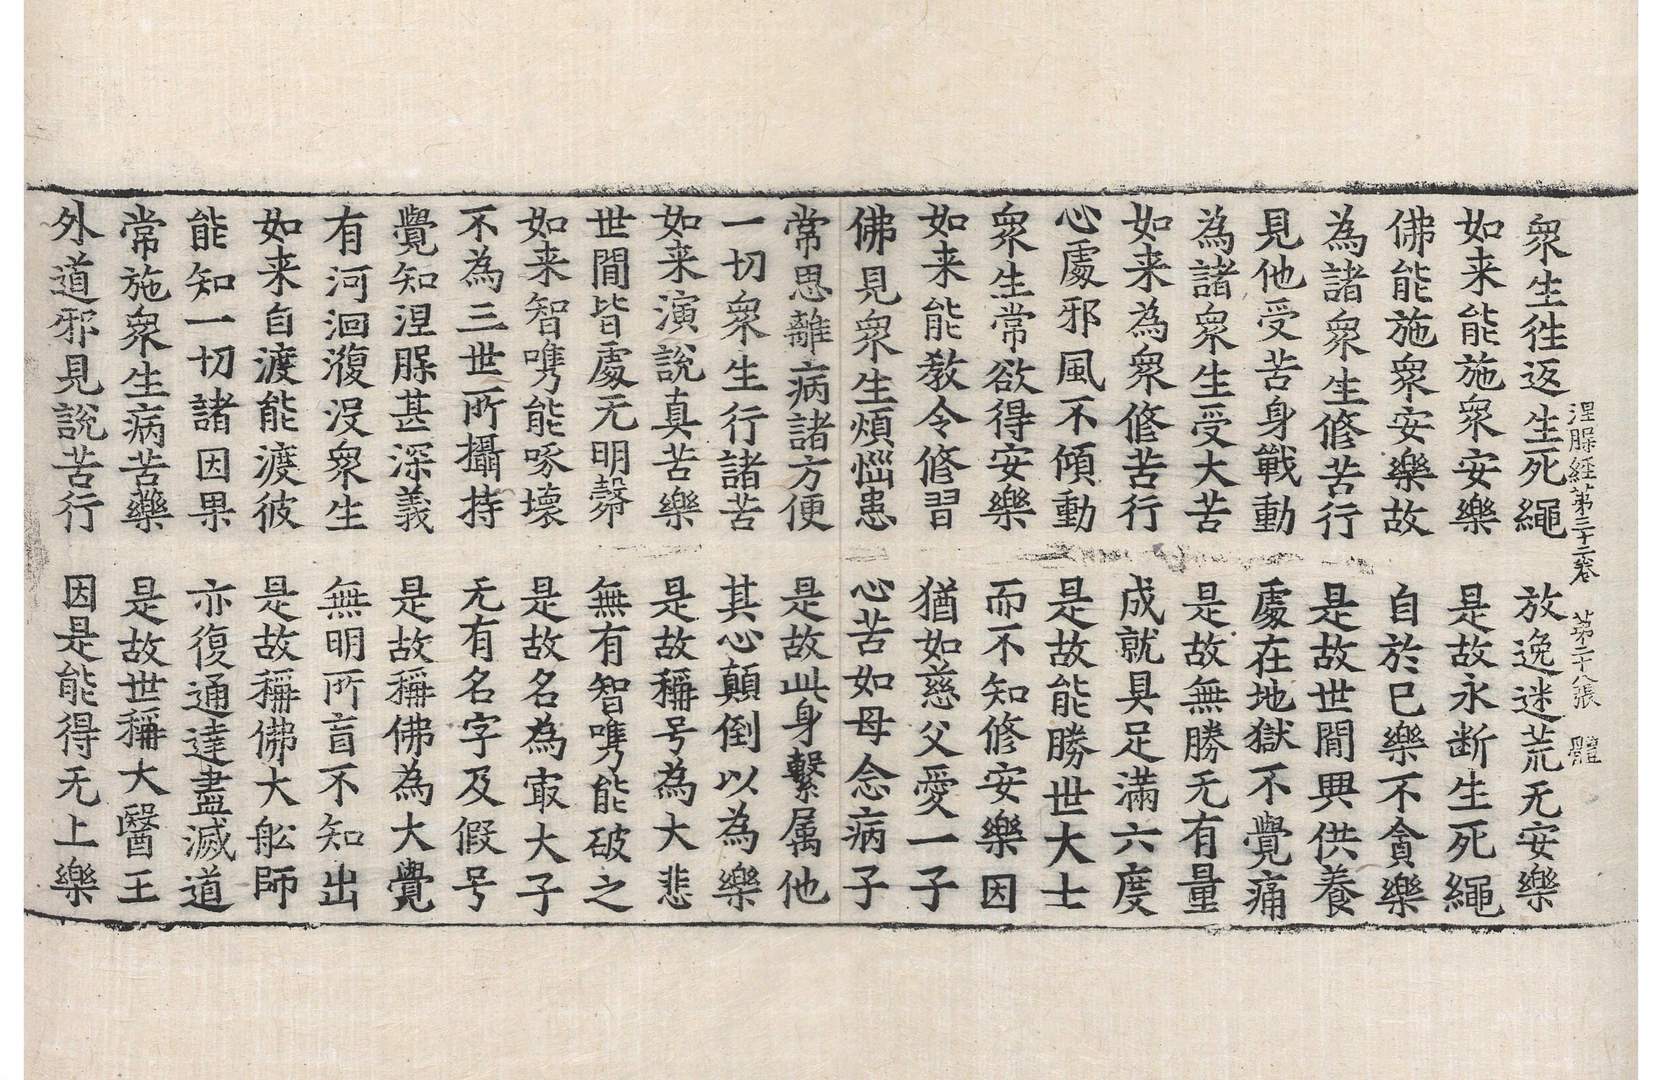 涅槃經第三十二卷　第二十八張　體
衆生往返生死繩　放逸迷荒无安樂
如来能施衆安樂　是故永断生死繩
佛能施衆安樂故　自於己樂不貪樂
為諸衆生修苦行　是故世閒興供養
見他受苦身戰動　處在地獄不覺痛
為諸衆生受大苦　是故無勝无有量
如来為衆修苦行　成就具足滿六度
心處邪風不傾動　是故能勝世大士
衆生常欲得安樂　而不知修安樂因
如来能教令修習　猶如慈父愛一子
佛見衆生煩惱患　心苦如母念病子
常思離病諸方便　是故此身繫属他
一切衆生行諸苦　其心顛倒以為樂
如来演說真苦樂　是故稱号為大悲
世閒皆處无明㲉　無有智嘴能破之
如来智嘴能啄壞　是故名為㝡大子
不為三世所攝持　无有名字及假号
覺知涅槃甚深義　是故稱佛為大覺
有河洄澓没衆生　無明所盲不知出
如来自渡能渡彼　是故稱佛大舩師
能知一切諸因果　亦復通達盡滅道
常施衆生病苦藥　是故世稱大醫王
外道邪見說苦行　因是能得无上樂